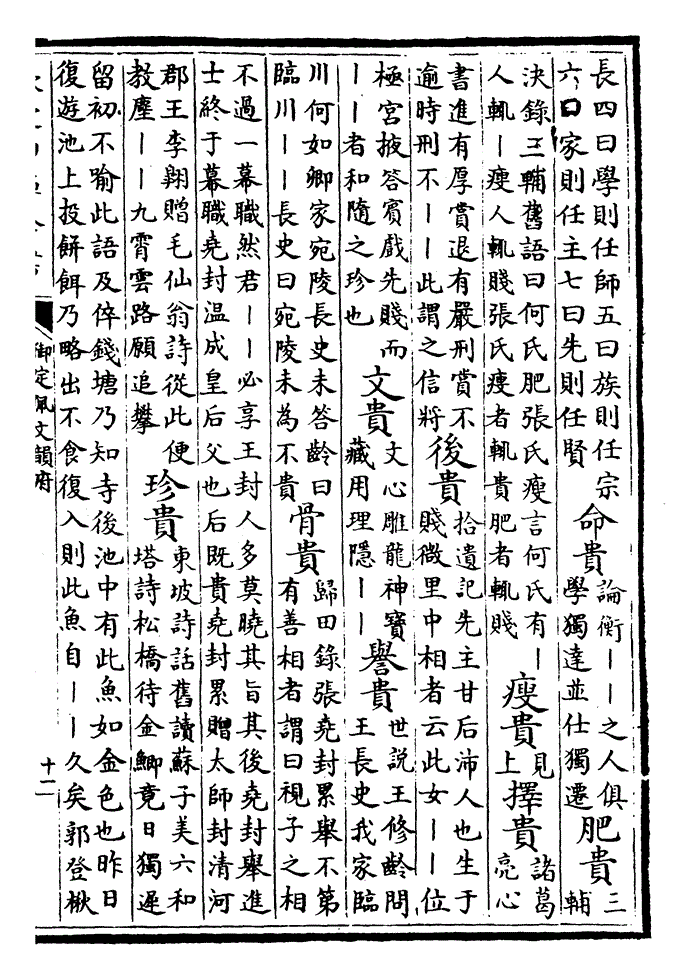 長四曰學則任師五曰族則任宗
六曰家則任主七曰先則任賢
命貴
論衡丨丨之人俱
學獨達並仕獨遷
肥貴
三
輔
決錄三輔舊語曰何氏肥張氏瘦言何氏有丨
人輒丨瘦人輒賤張氏瘦者輒貴肥者輒賤
瘦貴
見
上
擇貴
諸葛
亮心
書進有厚賞退有嚴刑賞不
逾時刑不丨丨此謂之信將
後貴
拾遺記先主甘后沛人也生于
賤微里中相者云此女丨丨位
極宮掖答賓戲先賤而
丨丨者和隨之珍也
文貴
文心雕龍神寶
藏用理隱丨丨
譽貴
世説王修齡問
王長史我家臨
川何如卿家宛陵長史未答齡曰
臨川丨丨長史曰宛陵未為不貴
骨貴
歸田錄張堯封累舉不第
有善相者謂曰視子之相
不過一幕職然君丨丨必享王封人多莫曉其旨其後堯封舉進
士終于幕職堯封温成皇后父也后既貴堯封累贈太師封清河
郡王李翔贈毛仙翁詩從此便
教塵丨丨九霄雲路願追攀
珍貴
東坡詩話舊讀蘇子美六和
塔詩松橋待金鯽竟日獨遲
留初不喻此語及倅錢塘乃知寺後池中有此魚如金色也昨日
復遊池上投餅餌乃略出不食復入則此魚自丨丨久矣郭登楸
御定佩文韻府
十二